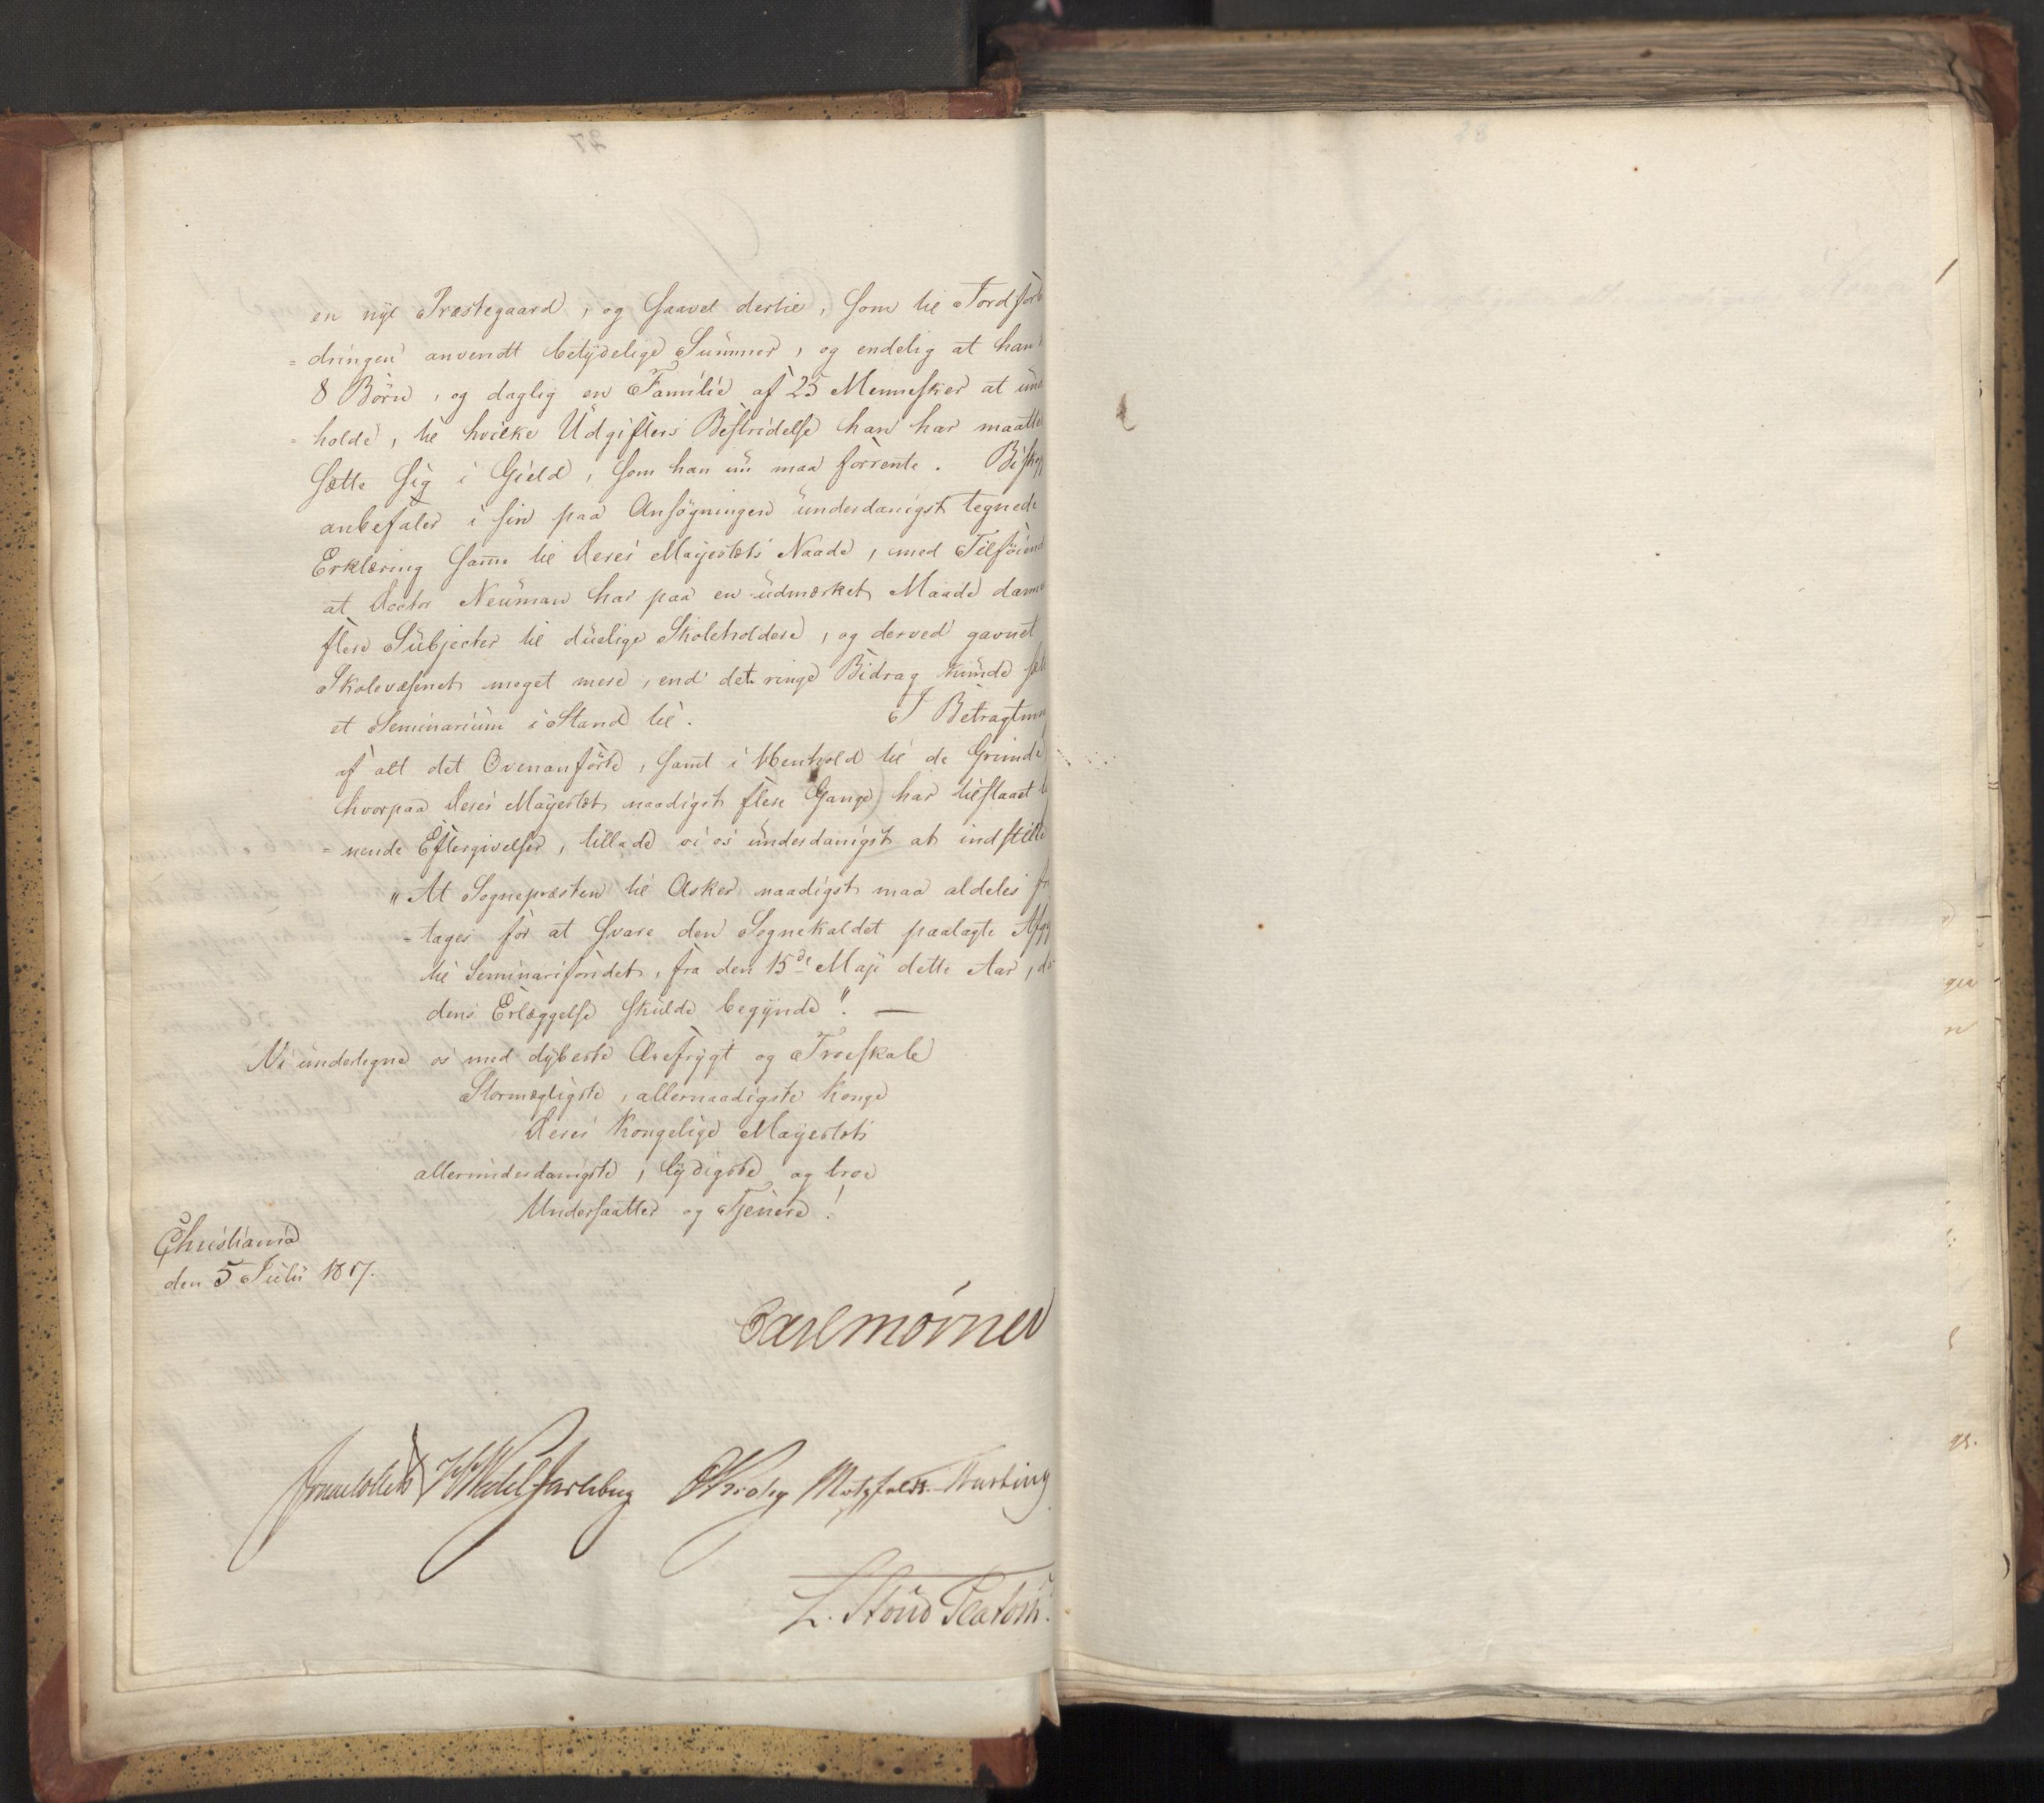 en nye Præstegaard, og saavel dertil, som til Jordforbe
= dringen anvendt betydelige Summer, og endelig at han
8 Börn, og daglig en Familie af 25 Mennesker at und
= holde, til hvilke Udgifters Bestridelse han har maattet
sætte sig i Gield, som han nu maa forrente. Biskop
anbefaler i sin paa Ansögningen underdanigst tegnede
Erklæring samme til Deres Majestæts Naade, med Tilföiend
at Doctor Neuman har paa en udmærket Maade dannet
flere Subjecter til duelige Skoleholdere, og derved gavnet
Skolevæsenet meget mere, end det ringe Bidrag kunde sætte
et Seminarium i Stand til. I Betragtning
af alt det Ovenanförte, samt i Henhold til de Grunde
hvorpaa Deres Majestæt naadigst flere Gange har tilstaaet
= nende Eftergivelser, tillade vi os underdanigst at indstille
"At Sognepræsten til Asker naadigst maa aldeles fri
= tages for at svare den Sognekaldet paalagte Afgi
til Seminarifondet, fra den 15de Maji dette Aar, da
dens Erlæggelse skulde begynde". —
Vi undertegne os med dybeste Ærefrygt og Troeskab
Stormægtigste, allernaadigste Konge
Deres Kongelige Majestæts
allerunderdanigste, lydigste og troe
Undersaatter og Tjenere!
Christiania
den 5 Julii 1817.
Carl Mörner
Jonas Collett HWedel Jarlsberg CKrohg Motzfeldt Hansteen
L. Stoud Platou